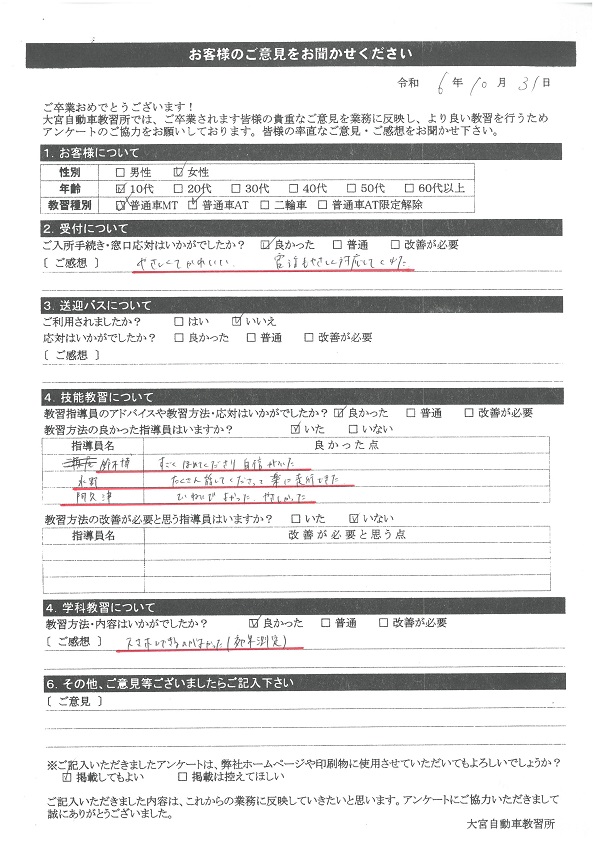 お客様のご意見をお聞かせください
令和 6 年 10 月 31 日
ご卒業おめでとうございます！
大宮自動車教習所では、ご卒業されます皆様の貴重なご意見を業務に反映し、より良い教習を行うため
アンケートのご協力をお願いしております。皆様の率直なご意見・ご感想をお聞かせ下さい。
1. お客様について
性別 □ 男性 ☑ 女性
年齢 ☑ 10代 □ 20代 □ 30代 □ 40代 □ 50代 □ 60代以上
教習種別 ☑ 普通車MT ☑ 普通車AT □ 二輪車 □ 普通車AT限定解除
2. 受付について
ご入所手続き・窓口応対はいかがでしたか？ ☑ 良かった □ 普通 □ 改善が必要
〔 ご感想 〕 やさしくてかわいい
3. 送迎バスについて
ご利用されましたか？ □ はい ☑ いいえ
応対はいかがでしたか？ □ 良かった □ 普通 □ 改善が必要
〔 ご感想 〕
4. 技能教習について
教習指導員のアドバイスや教習方法・応対はいかがでしたか？ ☑ 良かった □ 普通 □ 改善が必要
教習方法の良かった指導員はいますか？ ☑ いた □ いない
指導員名 良かった点
すごくほめてくださり自信がついた
水野 たくさん話してくださって楽に走行できた
阿久津 ていねいでよかった、やさしかった
教習方法の改善が必要と思う指導員はいますか？ □ いた ☑ いない
指導員名 改善が必要と思う点
4. 学科教習について
教習方法・内容はいかがでしたか？ ☑ 良かった □ 普通 □ 改善が必要
〔 ご感想 〕 スマホでできるのがよかった(効果測定)
6. その他、ご意見等ございましたらご記入下さい
〔 ご意見 〕
※ご記入いただきましたアンケートは、弊社ホームページや印刷物に使用させていただいてもよろしいでしょうか？
☑ 掲載してもよい □ 掲載は控えてほしい
ご記入いただきました内容は、これからの業務に反映していきたいと思います。アンケートにご協力いただきまして
誠にありがとうございました。
大宮自動車教習所